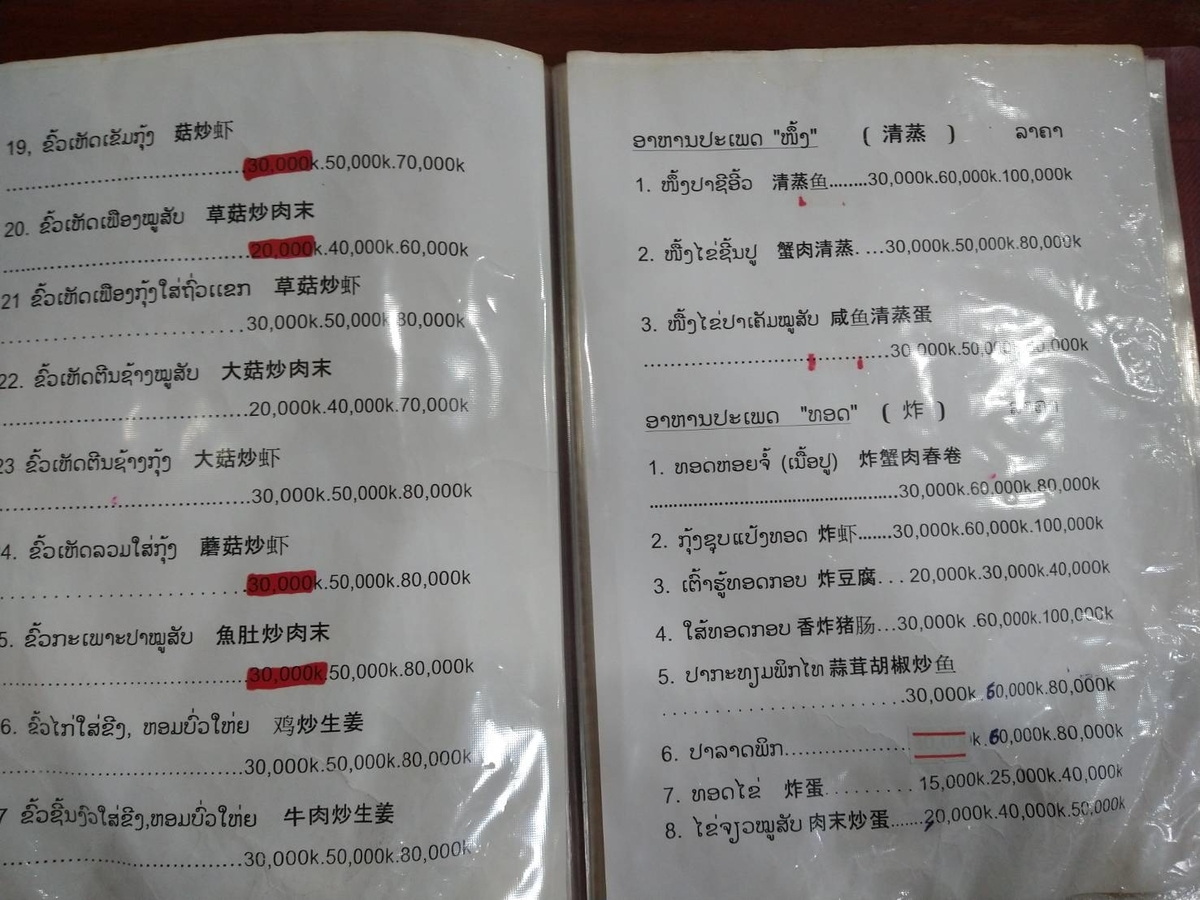 19, ຂົ້ວເຫັດເຂັມກຸ້ງ 菇炒虾
30,000k.50,000k.70,000k
20. ຂົ້ວເຫັດເຟືອງໝູສັບ 草菇炒肉末
20,000k.40,000k.60,000k
21 ຂົ້ວເຫັດເຟືອງກຸ້ງໃສ່ຖົ່ວແຂກ 草菇炒虾
30,000k.50,000k 80,000k
22. ຂົ້ວເຫັດຕີນຊ້າງໝູສັບ 大菇炒肉末
20,000k.40,000k.70,000k
23 ຂົ້ວເຫັດຕີນຊ້າງກຸ້ງ 大菇炒虾
30,000k.50,000k.80,000k
4. ຂົ້ວເຫັດລວມໃສ່ກຸ້ງ 蘑菇炒虾
30,000k.50,000k.80,000k
5. ຂົ້ວກະເພາະປາໝູສັບ 魚肚炒肉末
30,000k.50,000k.80,000k
6. ຂົ້ວໄກ່ໃສ່ຂີງ, ຫອມບົ່ວໃຫ່ຍ 鸡炒生姜
30,000k.50,000k.80,000k
7 ຂົ້ວຊີ້ນງົວໃສ່ຂີງ,ຫອມບົ່ວໃຫ່ຍ 牛肉炒生姜
30,000k.50,000k.80,000k
ອາຫານປະເພດ "ໜຶ້ງ" ( 清蒸 ) ລາຄາ
1. ໜຶ້ງປາຊີອີ້ວ 清蒸鱼........30,000k.60,000k.100,000k
2. ໜຶ້ງໄຂ່ຊີ້ນປູ 蟹肉清蒸. ...30,000k.50,000k.80,000k
3. ໜຶ້ງໄຂ່ປາເຄັມໝູສັບ 咸鱼清蒸蛋
30,000k.50,000k
ອາຫານປະເພດ "ທອດ" ( 炸 ) ລາຄາ
1. ທອດຫອຍຈໍ້ (ເນື້ອປູ) 炸蟹肉春卷
30,000k.60,000k.80,000k
2. ກຸ້ງຊຸບແປ້ງທອດ 炸虾.......30,000k.60,000k.100,000k
3. ເຕົ້າຮູ້ທອດກອບ 炸豆腐. . . 20,000k.30,000k.40,000k
4. ໃສ້ທອດກອບ 香炸猪肠...30,000k .60,000k.100,000k
5. ປາກະທຽມພິກໄທ 蒜茸胡椒炒鱼
30,000k .60,000k.80,000k
6. ປາລາດພິກ....................k .60,000k.80,000k
7. ທອດໄຂ່ 炸蛋......... 15,000k.25,000k.40,000k
8. ໄຂ່ຈຽວໝູສັບ 肉末炒蛋.......20,000k.40,000k.50,000k